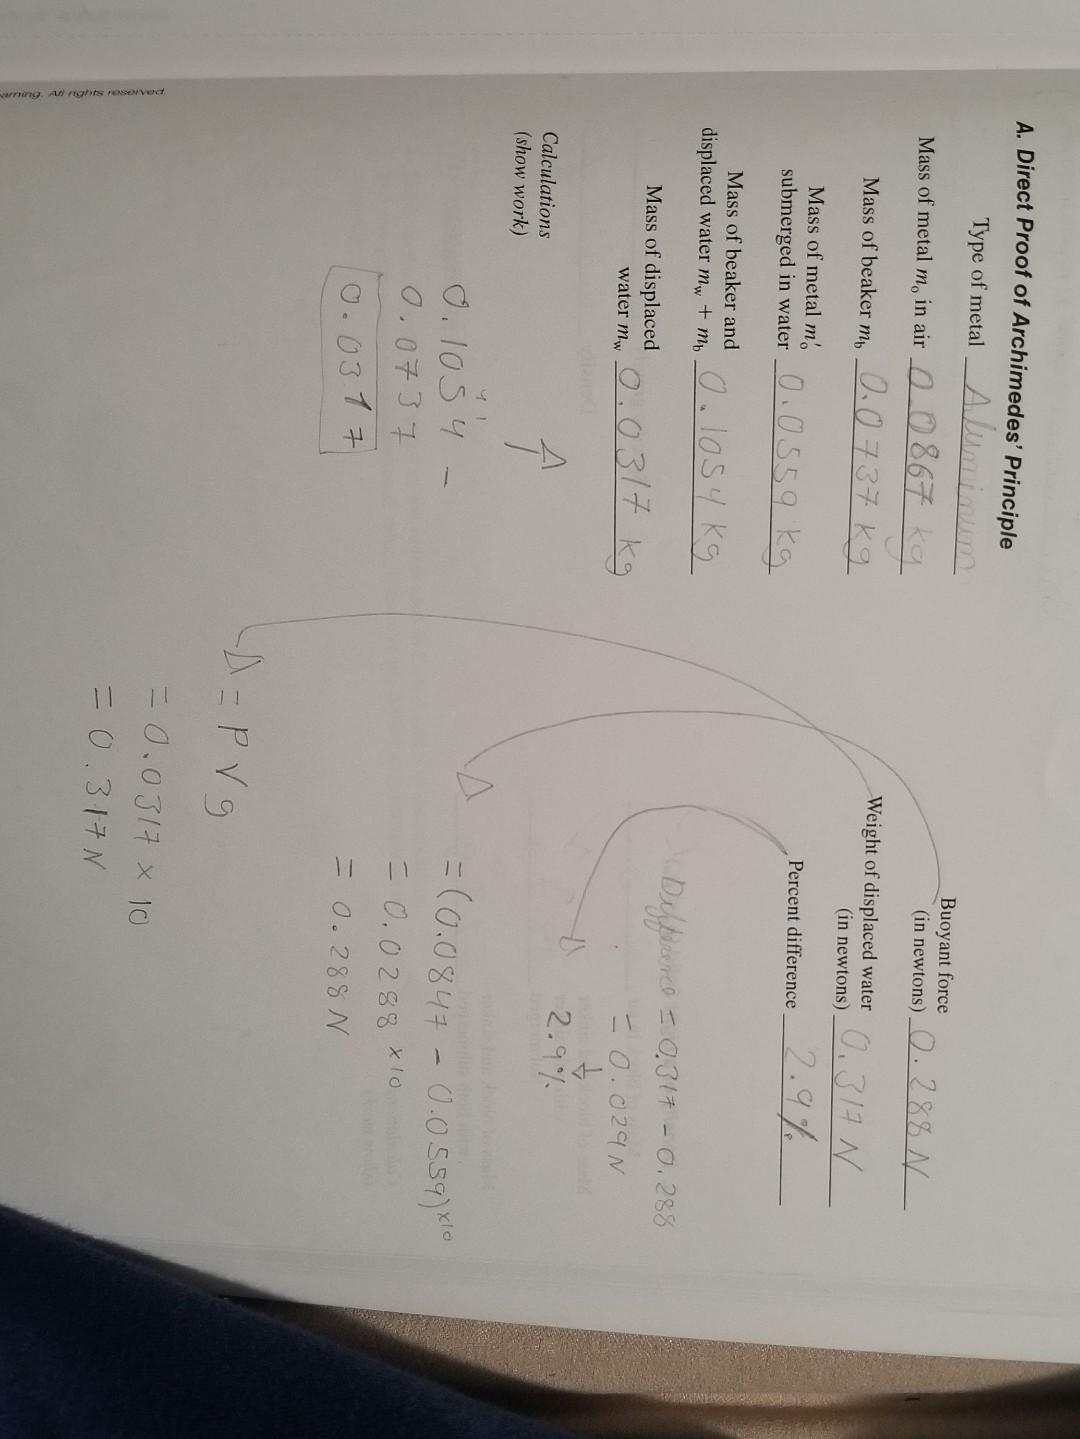 A. Direct Proof of Archimedes' Principle
Type of metal Aluminum
Mass of metal mₒ in air 0.0867 kg
Mass of beaker m_b 0.0737 kg
Mass of metal m′ₒ
submerged in water 0.0559 kg
Mass of beaker and
displaced water m_w + m_b 0.1054 kg
Mass of displaced
water m_w 0.0317 kg
Buoyant force
(in newtons) 0.288 N
Weight of displaced water
(in newtons) 0.317 N
Percent difference 2.9%
Calculations
(show work)
0.1054 -
0.0737
0.0317
% Difference = 0.317 - 0.288
= 0.029 N
2.9%
= (0.0847 - 0.0559) x10
= 0.0288 x10
= 0.288 N
= PVg
= 0.0317 x 10
= 0.317 N
arning. All rights reserved.